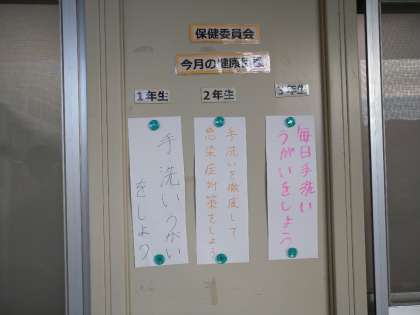 保健委員会
今月の健康目標
1年生
手洗いうがい
をしよう
2年生
手洗いを徹底して
感染症対策をしよう
3年生
毎日手洗い
うがいをしよう